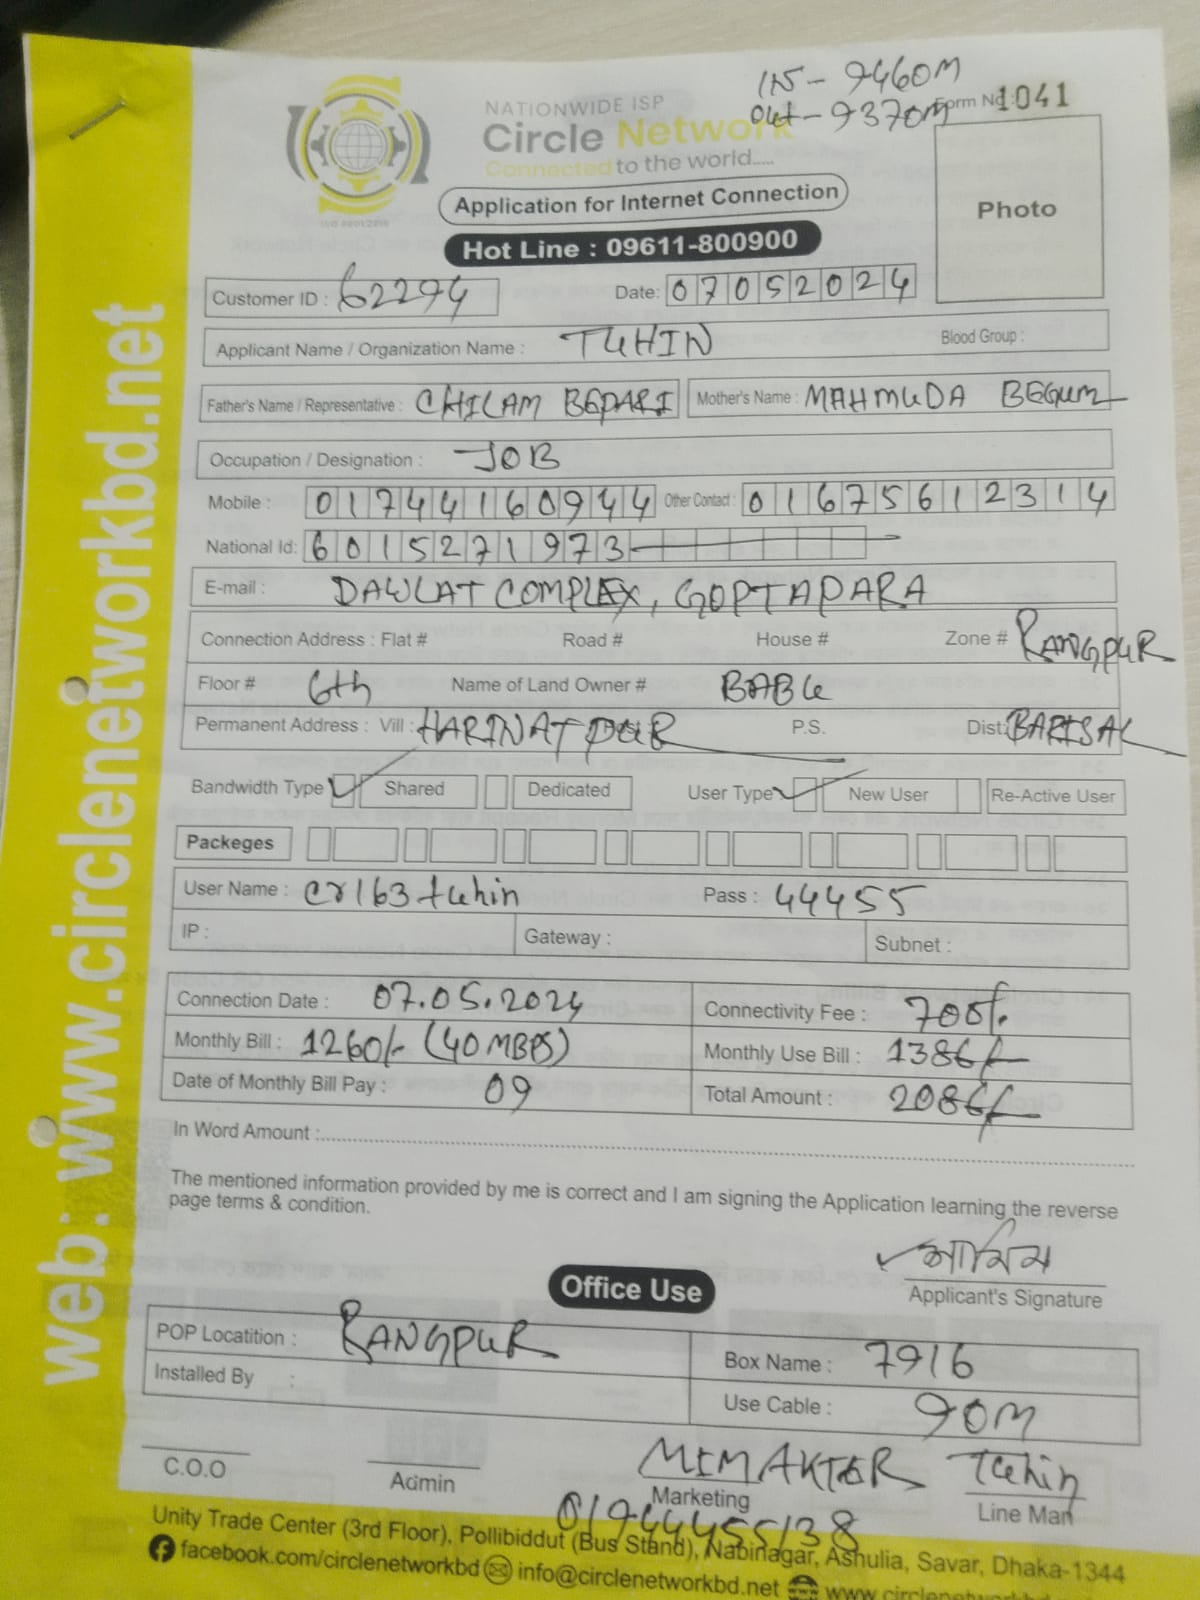 IN - 9460M
Out - 9370M
Form No: 1041
NATIONWIDE ISP
Circle Network
Connected to the world.....
ISO 9001:2015
Application for Internet Connection
Photo
Hot Line : 09611-800900
Customer ID : 62294 Date: 07052024
Applicant Name / Organization Name : TUHIN Blood Group :
Father's Name / Representative : CHILAM BEPARI Mother's Name : MAHMUDA BEGUM
Occupation / Designation : JOB
Mobile : 01744160944 Other Contact : 01675612314
National Id: 6015271973
E-mail : DAWLAT COMPLEX, GOPTAPARA
Connection Address : Flat # Road # House # Zone # RANGPUR
Floor # 6th Name of Land Owner # BABU
Permanent Address : Vill : HARINATPUR P.S. Dist: BARISAL
Bandwidth Type Shared Dedicated User Type New User Re-Active User
Packeges
User Name : cr163tuhin Pass : 44455
IP : Gateway : Subnet :
Connection Date : 07.05.2024 Connectivity Fee : 700/-
Monthly Bill : 1260/- (40 MBPS) Monthly Use Bill : 1386/-
Date of Monthly Bill Pay : 09 Total Amount : 2086/-
In Word Amount :
The mentioned information provided by me is correct and I am signing the Application learning the reverse
page terms & condition.
Applicant's Signature
Office Use
POP Locatition : RANGPUR Box Name : 7916
Installed By : Use Cable : 90M
MIM AKTER Tuhin
C.O.O Admin Marketing Line Man
01944455138
Unity Trade Center (3rd Floor), Pollibiddut (Bus Stand), Nabinagar, Ashulia, Savar, Dhaka-1344
facebook.com/circlenetworkbd info@circlenetworkbd.net
web: www.circlenetworkbd.net